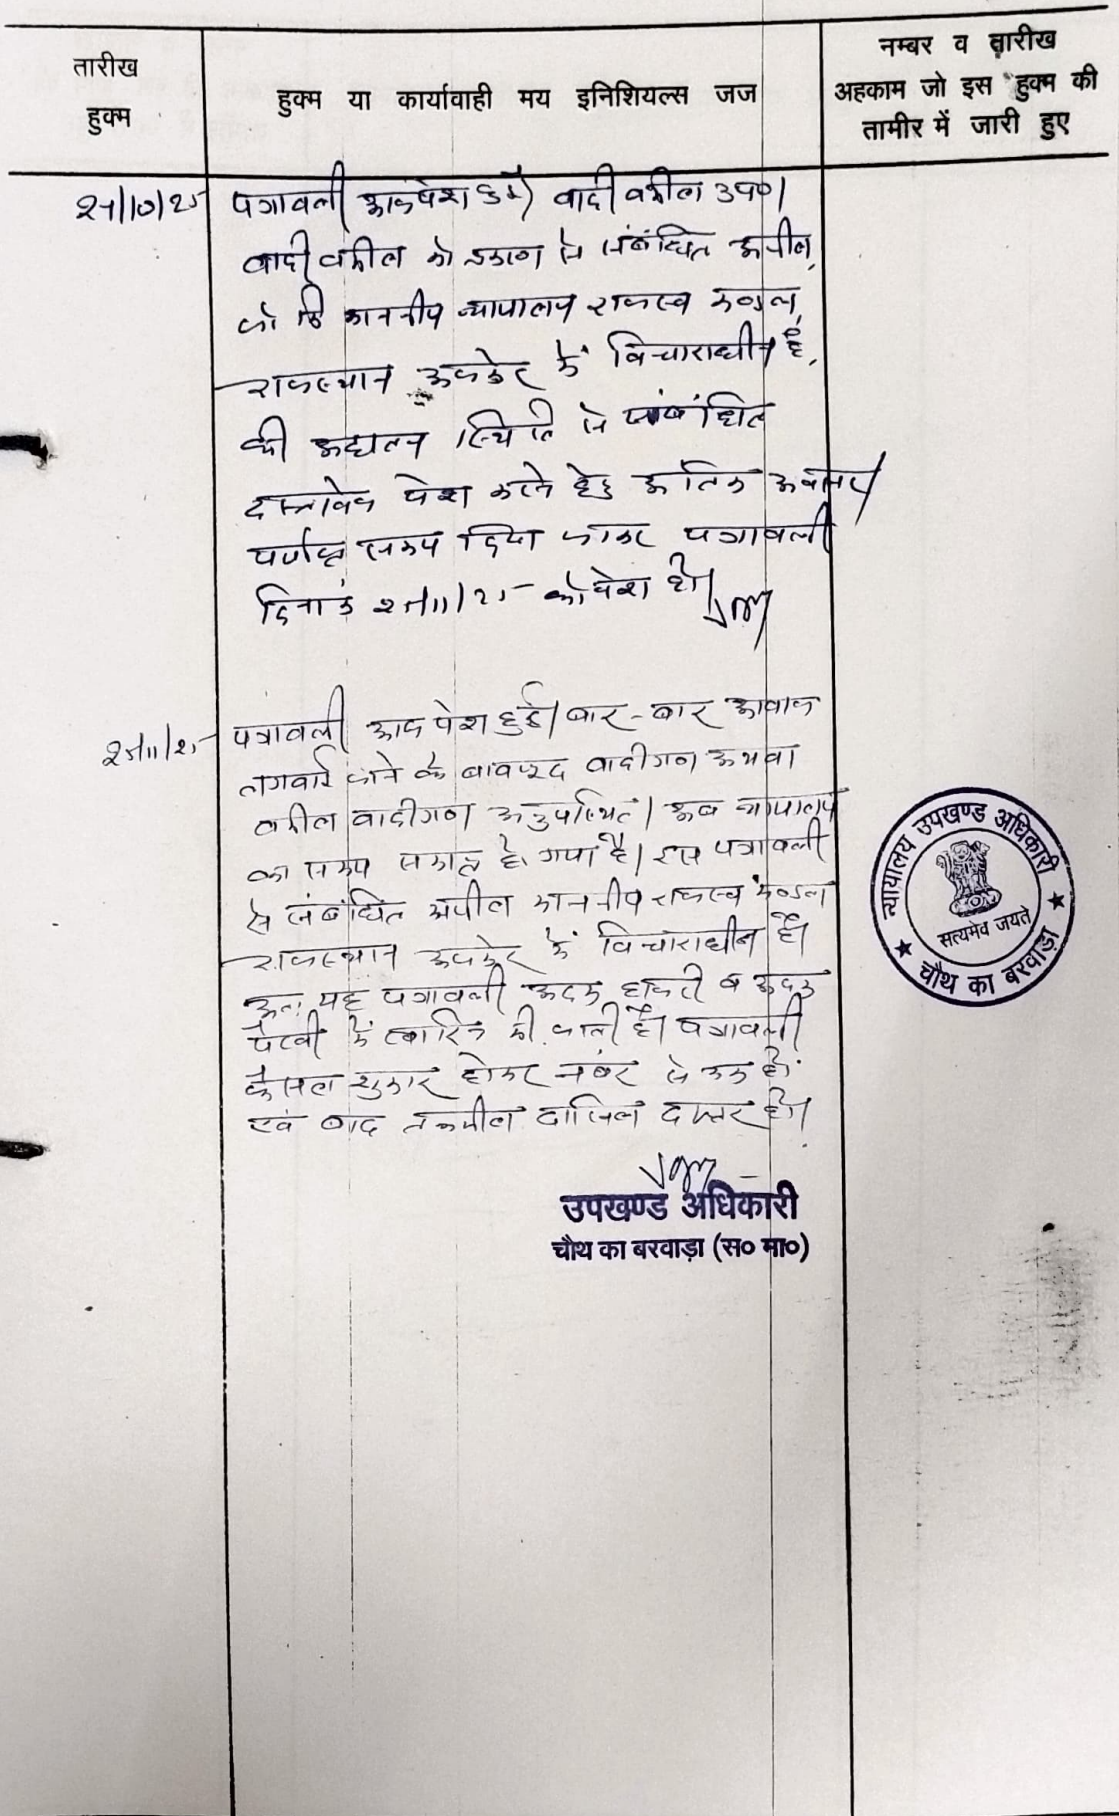 तारीख
हुक्म
हुक्म या कार्यावाही मय इनिशियल्स जज
नम्बर व तारीख
अहकाम जो इस हुक्म की
तामीर में जारी हुए
पत्रावली आज पेश हुई। वादी वकील उप०।
वादी वकील को प्रकरण से संबंधित अपील,
जो कि माननीय न्यायालय राजस्व मण्डल,
राजस्थान अजमेर में विचाराधीन है,
की अद्यतन स्थिति से संबंधित
दस्तावेज पेश करने हेतु अंतिम अवसर
पर्याप्त समय दिया जाकर पत्रावली
दिनांक को पेश हो।
पत्रावली आज पेश हुई। बार-बार आवाज
लगवाई जाने के बावजूद वादीगण अथवा
वकील वादीगण अनुपस्थित। अब न्यायालय
का समय समाप्त हो गया है। इस पत्रावली
से संबंधित अपील माननीय राजस्व मण्डल
राजस्थान अजमेर में विचाराधीन है।
अतः यह पत्रावली अदम हाजरी व अदम
पैरवी में खारिज की जाती है। पत्रावली
फैसल शुमार होकर नंबर से कम हो
एवं बाद तकमील दाखिल दफ्तर हो।
न्यायालय उपखण्ड अधिकारी
सत्यमेव जयते
चौथ का बरवाड़ा
उपखण्ड अधिकारी
चौथ का बरवाड़ा (स० मा०)